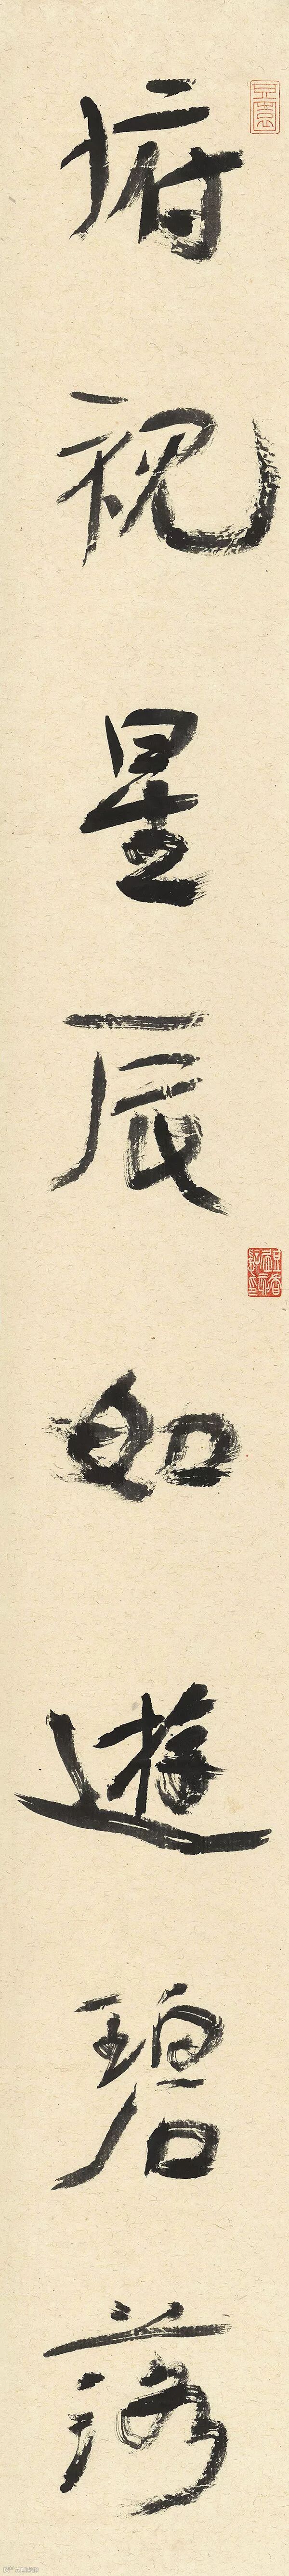 俯視星辰如遊碧落